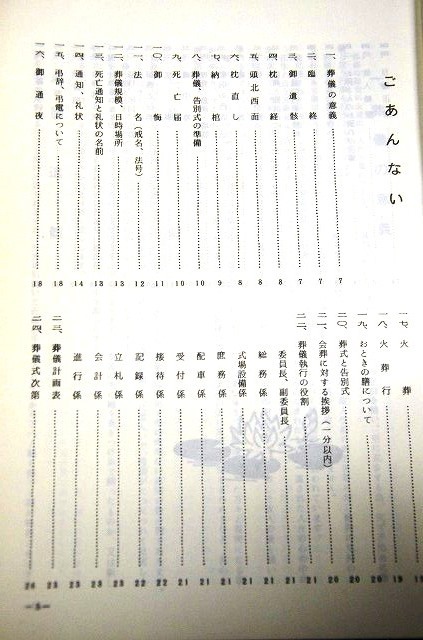 ごあんない
一、葬儀の意義 7
二、臨終 7
三、御遺骸 7
四、枕経 8
五、頭北西面 8
六、枕直し 8
七、納棺 9
八、葬儀、告別式の準備 9
九、死亡届 10
一〇、御悔 11
一一、法名(戒名、法号) 12
一二、葬儀規模、日時場所 13
一三、死亡通知と礼状の名前 13
一四、通知、礼状 14
一五、弔辞、弔電について 18
一六、御通夜 18
一七、火葬
一八、火葬行 19
一九、おときの膳について 20
二〇、葬式と告別式 20
二一、会葬に対する挨拶(一分以内) 20
二二、葬儀執行の役割 21
委員長、副委員長 21
総務係 21
式場設備係 21
庶務係 21
配車係 21
受付係 21
接待係 22
記録係 22
立札係 23
会計係 23
進行係 23
二三、葬儀計画表 23
二四、葬儀式次第 26
—5—